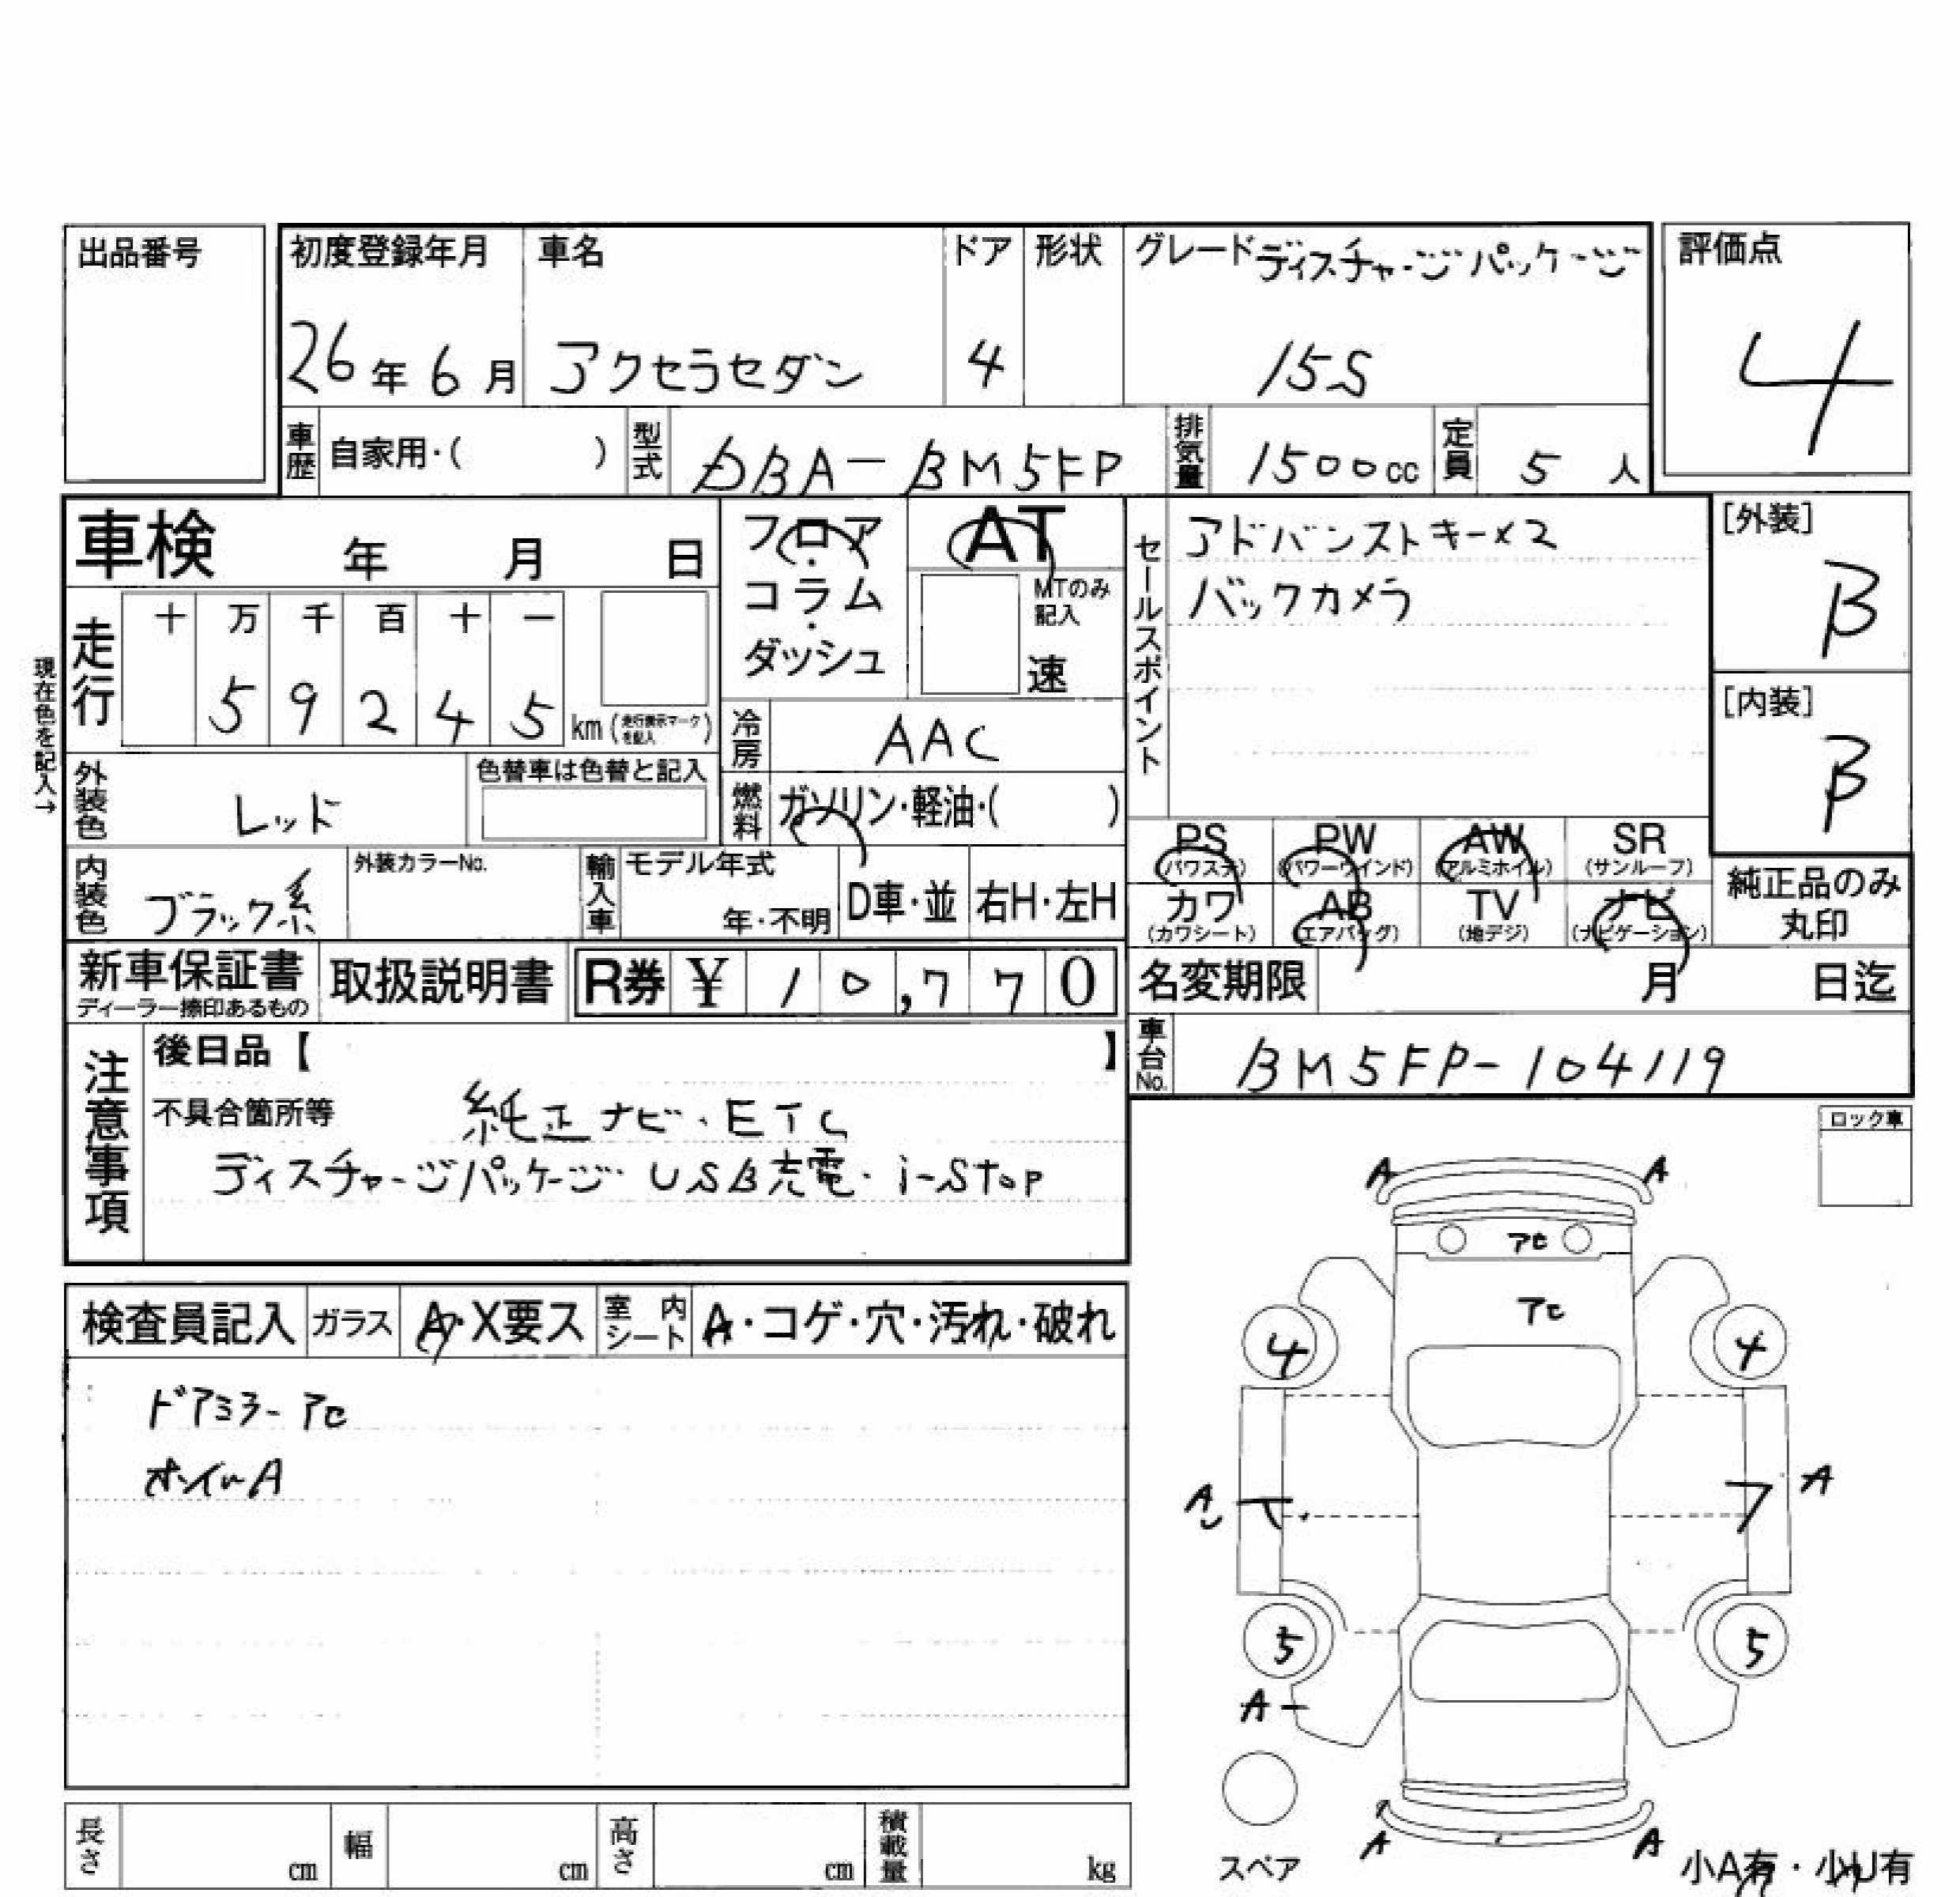 出品番号
初度登録年月
26年6月
車名
アクセラセダン
ドア
4
形状
グレード ディスチャージパッケージ
15S
評価点
4
車歴 自家用・( )
型式 DBA-BM5FP
排気量 1500cc
定員 5人
車検 年 月 日
フロア・コラム・ダッシュ
AT
MTのみ記入
速
セールスポイント
アドバンストキー×2
バックカメラ
[外装]
B
[内装]
B
現在色を記入→
走行
十 万 千 百 十 一
5 9 2 4 5 km (走行表示マークを記入)
冷房 AAC
外装色 レッド
色替車は色替と記入
燃料 ガソリン・軽油・( )
PS (パワステ)
PW (パワーウインド)
AW (アルミホイル)
SR (サンルーフ)
カワ (カワシート)
AB (エアバッグ)
TV (地デジ)
ナビ (ナビゲーション)
純正品のみ丸印
内装色 ブラック系
外装カラーNo.
輸入車
モデル年式
年・不明
D車・並
右H・左H
新車保証書
ディーラー捺印あるもの
取扱説明書
R券 ¥ 10,770
名変期限 月 日迄
車台No. BM5FP-104119
注意事項
後日品【 】
不具合箇所等 純正ナビ・ETC
ディスチャージパッケージ・USB充電・i-Stop
ロック車
検査員記入
ガラス A・X要ス
室内シート A・コゲ・穴・汚れ・破れ
ドアミラーアC
ホイルA
A A
アC
アC
4 4
A
A
5 5
A
スペア
A A
小A有・小U有
長さ cm
幅 cm
高さ cm
積載量 kg